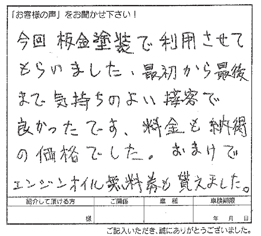 「お客様の声」をお聞かせ下さい!
今回板金塗装で利用させて
もらいました、最初から最後
まで気持ちのよい接客で
良かったです、料金も納得
の価格でした。おまけで
エンジンオイル無料券も貰えました。
紹介して頂ける方 ご関係 車種 車検期限
様 年 月 日
ご記入いただき、誠にありがとうございました。